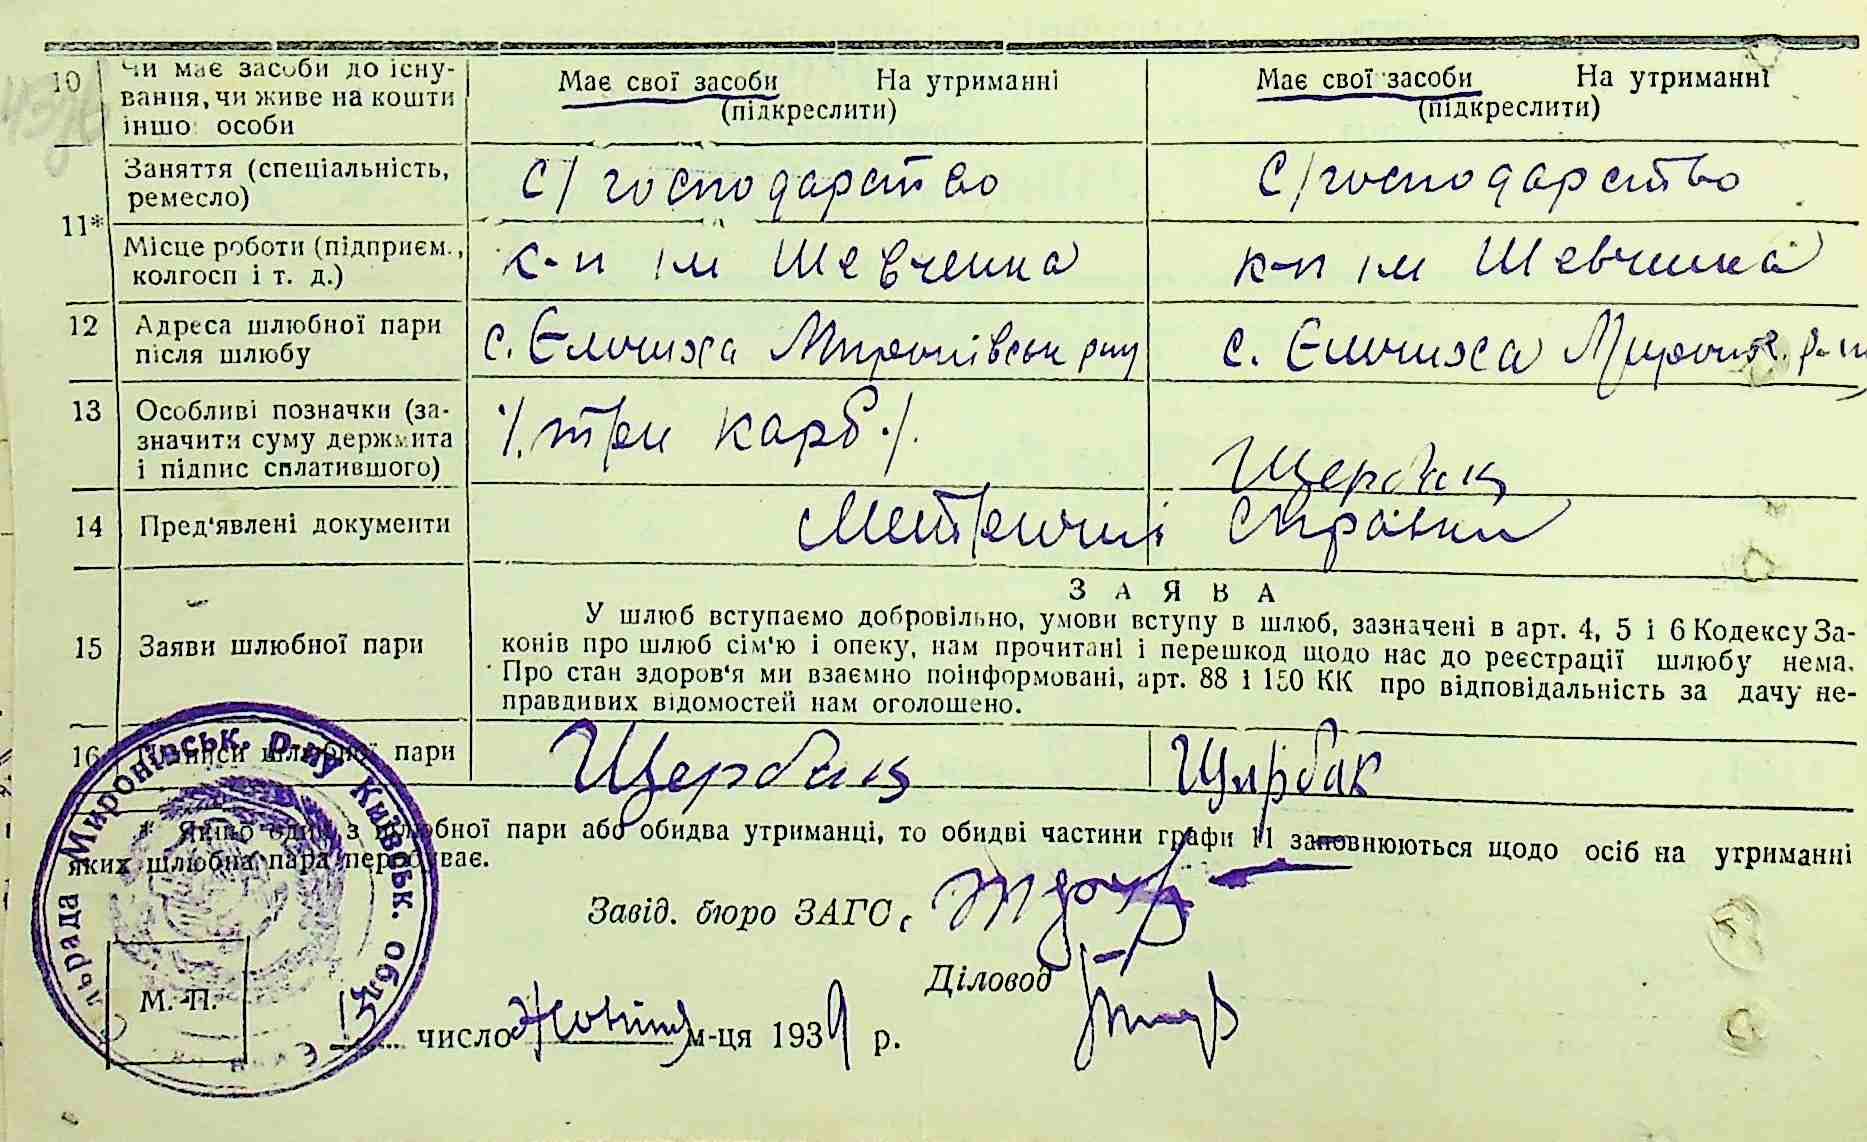 10 Чи має засоби до існу-
вання, чи живе на кошти
іншо особи
Має свої засоби На утриманні
(підкреслити)
Має свої засоби На утриманні
(підкреслити)
11*
Заняття (спеціальність,
ремесло)
с/господарство
с/господарство
Місце роботи (підприєм.,
колгосп і т. д.)
к-п ім Шевченка
к-п ім Шевченка
12 Адреса шлюбної пари
після шлюбу
с. Ємчиха Миронівськ р-ну
с. Ємчиха Миронів. р-ну
13 Особливі позначки (за-
значити суму держмита
і підпис сплатившого)
/.три карб./.
Щербак
14 Пред'явлені документи
Метричні справки
15 Заяви шлюбної пари
ЗАЯВА
У шлюб вступаємо добровільно, умови вступу в шлюб, зазначені в арт. 4, 5 і 6 Кодексу За-
конів про шлюб сім'ю і опеку, нам прочитані і перешкод щодо нас до реєстрації шлюбу нема.
Про стан здоров'я ми взаємно поінформовані, арт. 88 і 150 КК про відповідальність за дачу не-
правдивих відомостей нам оголошено.
16 Підписи шлюбної пари
Щербак
Щирбак
* Якщо один з шлюбної пари або обидва утриманці, то обидві частини графи 11 заповнюються щодо осіб на утриманні
яких шлюбна пара перебуває.
Завід. бюро ЗАГС
Діловод
М. П.
15 число Жовтня м-ця 1939 р.
льрада Миронівськ. р-ну Київськ. обл.